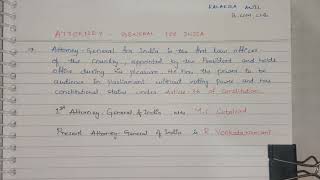 KALAKSA ANIL
B.COM, LLB
ATTORNEY - GENERAL FOR INDIA
→ Attorney-General for India is the first law officer
of the country, appointed by the President and holds
office during his pleasure. He has the power to be
audience in Parliament without voting power and has
constitutional status under Article 76 of constitution
1st Attorney-General of India was M.C. Setalvad
Present Attorney-General of India is R. Venkataramani